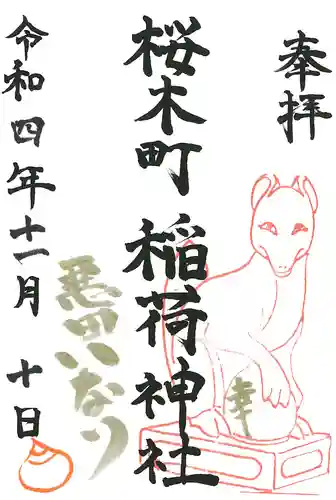 奉拝
桜木町 稲荷神社
幸
思田いなり
令和四年十一月 十日